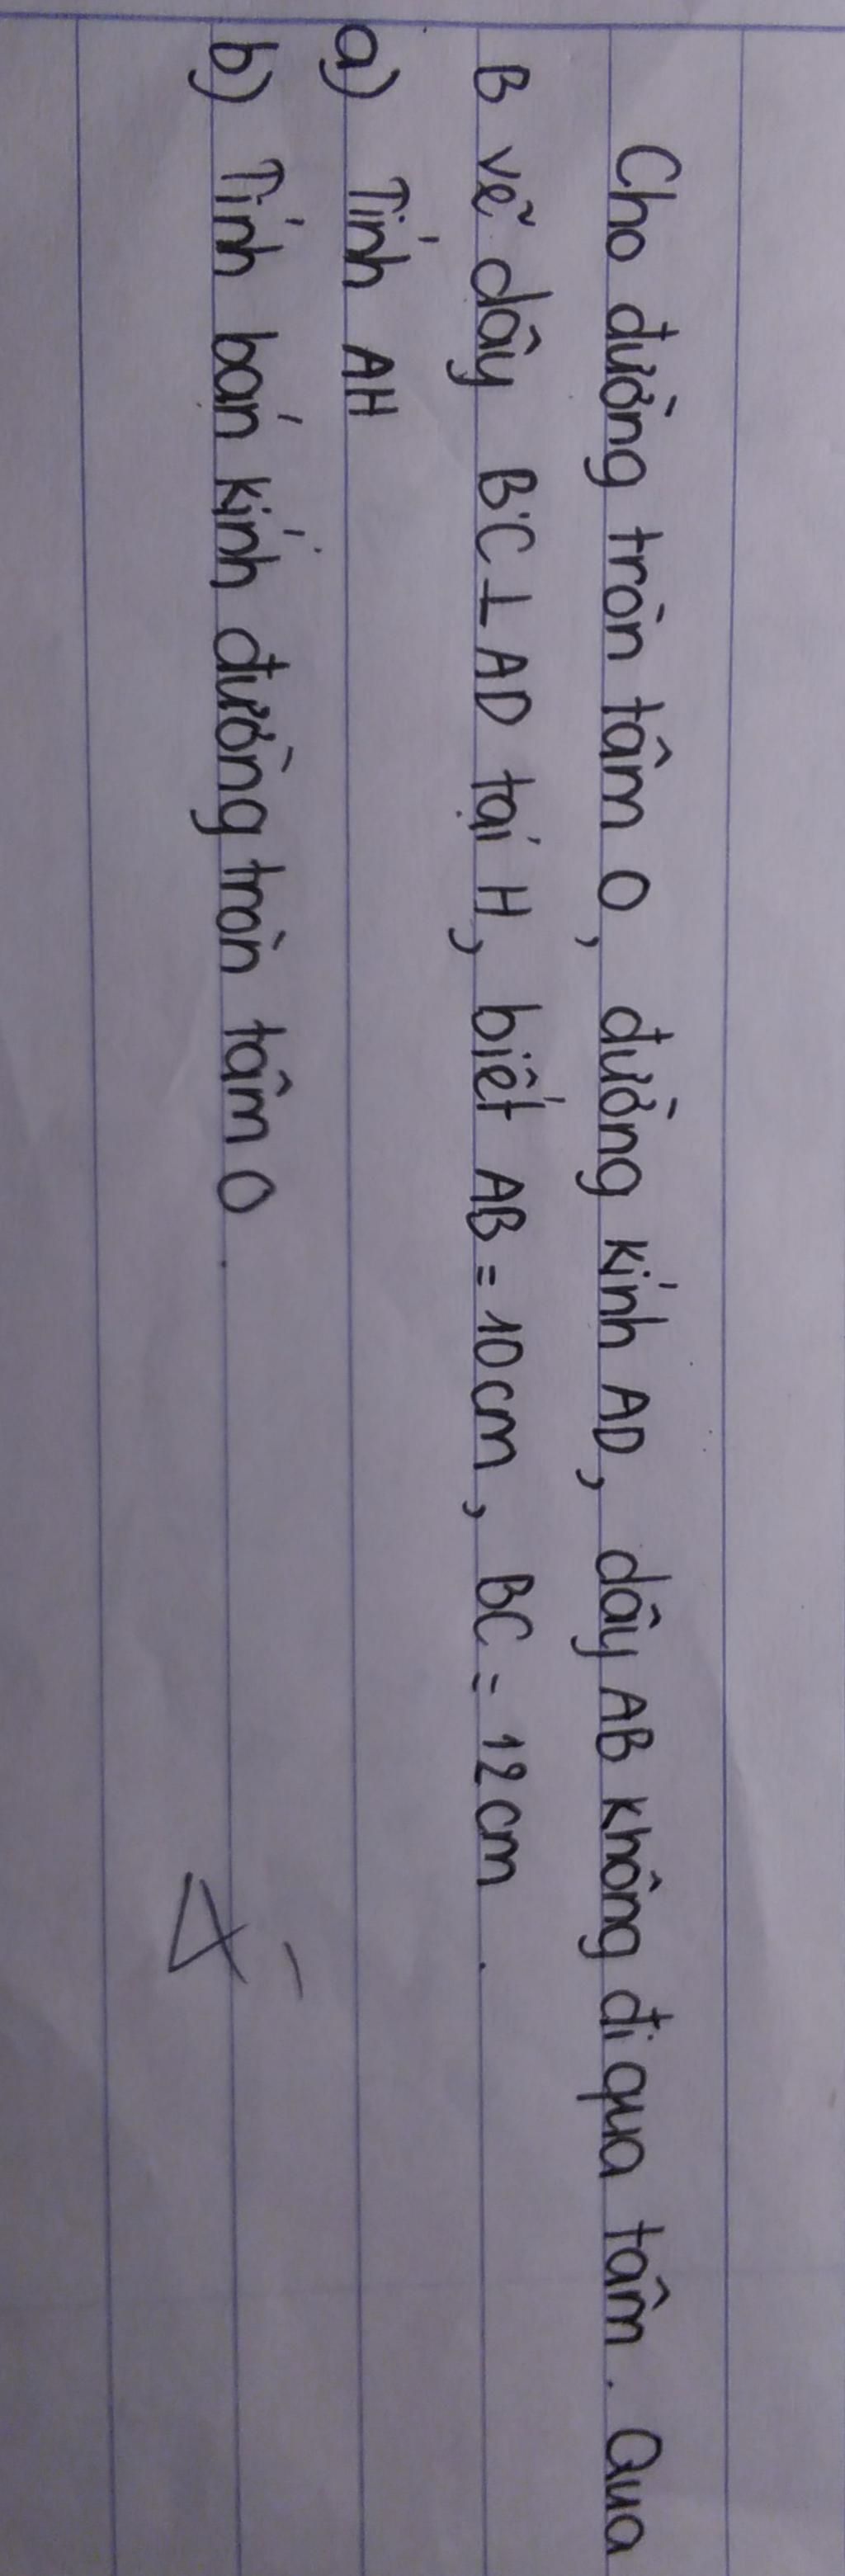 Cho đường tròn tâm O, đường kính AD, dây AB không đi qua tâm. Qua
B vẽ dây BC ⊥ AD tại H, biết AB = 10cm, BC = 12cm.
a) Tính AH
b) Tính bán kính đường tròn tâm O.